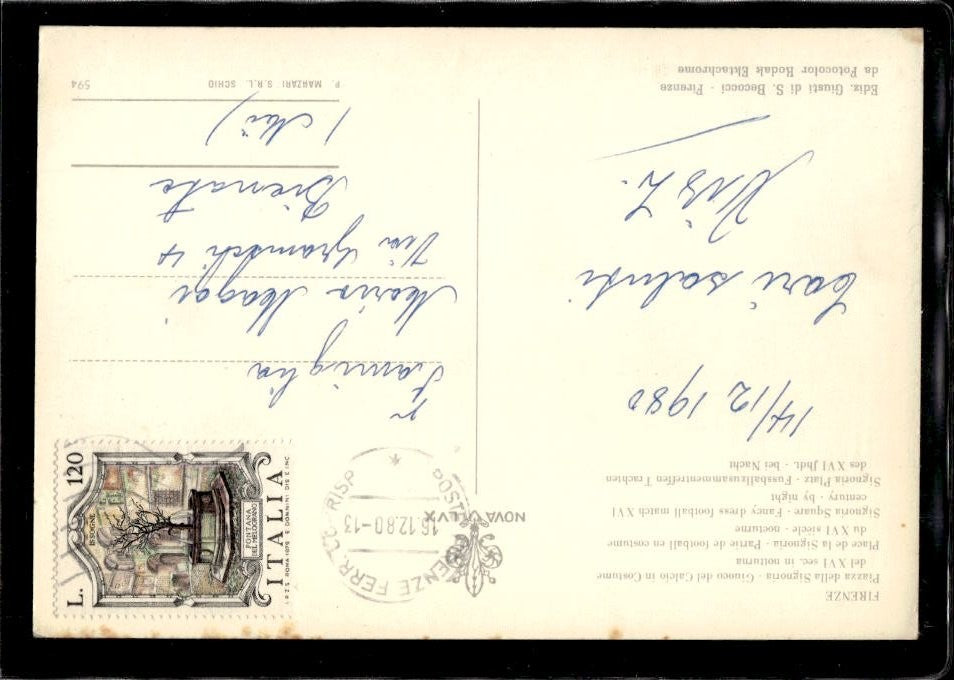 FIRENZE
Piazza della Signoria - Giuoco del Calcio in Costume
del XVI sec. in notturna
Place de la Signoria - Partie de football en costume
du XVI siecle - nocturne
Signoria Square - Fancy dress football match XVI
century - by night
Signoria Platz - Fussballzusammentreffen Trachten
des XVI Jhdt. - bei Nacht
14/12 1980
Cari saluti
Ediz. Giusti di S. Becocci - Firenze
da Fotocolor Kodak Ektachrome
NOVA LVX
POSTE
16.12.80-13
L. 120
ISSOGNE
FONTANA
DEL MELOGRANO
ITALIA
Famiglia
Mario Maggi
Via Gramsci 4
Bienate
(Mi)
P. MARZARI S.R.L. SCHIO
594